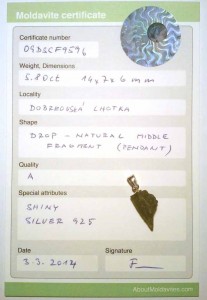 Moldavite certificate
Certificate number
09DSCF9596
Weight, Dimensions
5.80ct 14x7x6mm
Locality
DOBRKOVSKÁ LHOTKA
Shape
DROP - NATURAL MIDDLE
FRAGMENT (PENDANT)
Quality
A
Special attributes
SHINY
SILVER 925
Date
Signature
3.3.2014
AboutMoldavites.com